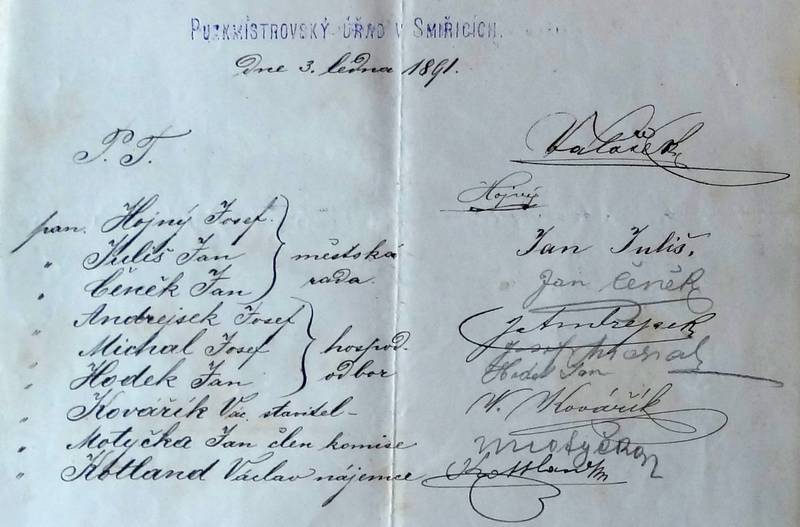 PURKMISTROVSKÝ ÚŘAD V SMIŘICÍCH.
dne 3. ledna 1891.
P. T.
Valášek
Hojný
pan. Hojný Josef.
" Juliš Jan městská Jan Juliš.
" Čeněk Jan rada. Jan Čeněk
" Andrejsek Josef J. Andrejsek
" Michal Josef hospod. Josef Michal
" Hodek Jan odbor Hodek Jan
" Kovářík Vác. stavitel - V. Kovářík
" Motyčka Jan člen komise Motyčka
" Kotland Václav nájemce Kottland